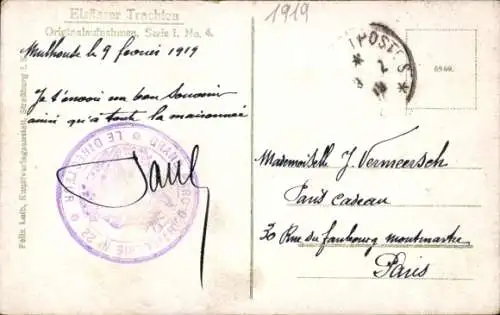 1919
Elsässer Trachten
Originalaufnahmen, Serie I. No. 4.
Mulhouse le 9 fevrier 1919
Je t'envoi un bon souvenir
ainsi qu'à toute la maisonnée
Paul
LE DIRECTEUR
Nº 22
POSTES
* 2
6960.
Mademoiselle J. Vermeersch
Paris Cadeau
30 Rue du Faubourg Montmartre
Paris
Felix Luib, Kunstverlagsanstalt, Strassburg i. E.